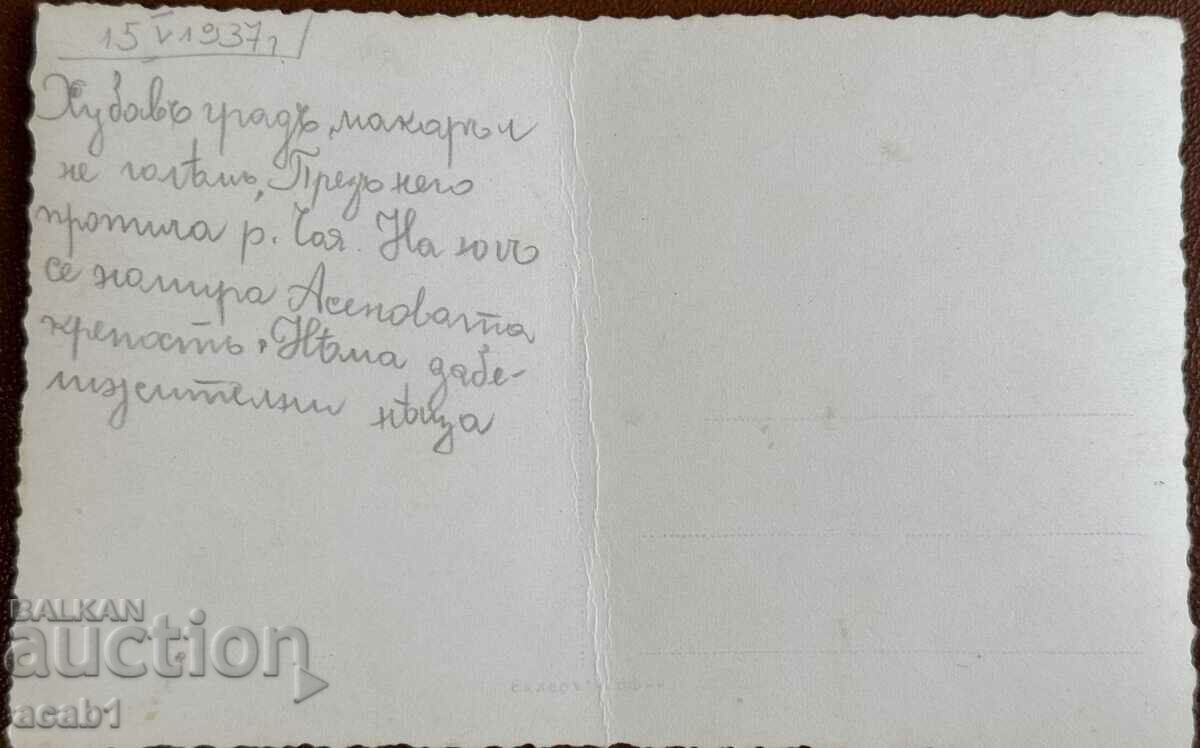 15 V 1937 г
Хубавъ градъ, макаръ и
не голѣмъ, Презъ него
протича р. Чая. На югъ
се намира Асеновата
крепость. Нѣма забе-
лижителни нѣща
BALKAN
auction
acab1